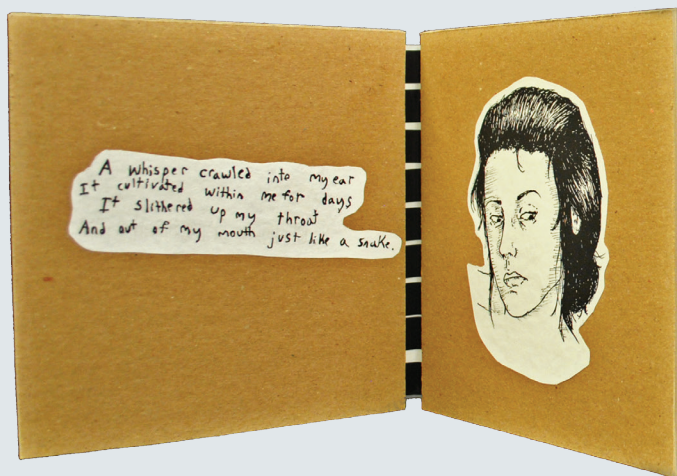 A whisper crawled into my ear
It cultivated within me for days
It slithered up my throat
And out of my mouth just like a snake.